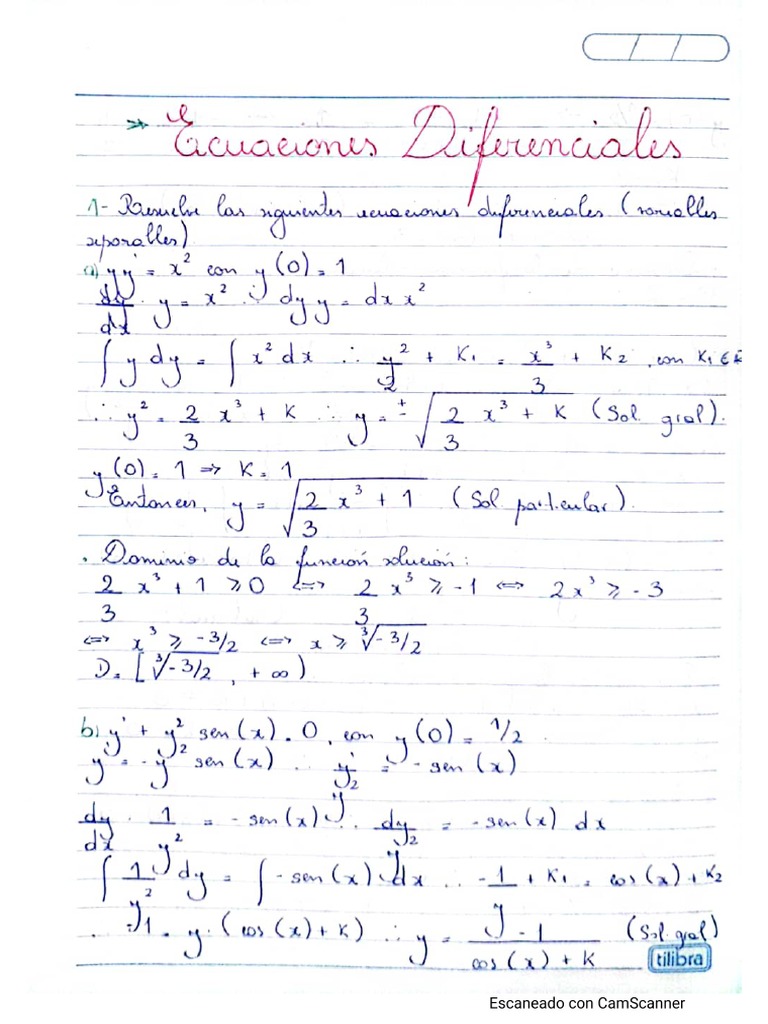 → Ecuaciones Diferenciales
1- Resuelve las siguientes ecuaciones diferenciales (variables
separables)
a) yy' = x² con y(0) = 1
dy/dx · y = x² ∴ dy y = dx x²
∫ y dy = ∫ x² dx ∴ y²/2 + K₁ = x³/3 + K₂, con K₁ ∈
∴ y² = 2/3 x³ + K ∴ y = ± √(2/3 x³ + K) (Sol gral).
y(0) = 1 ⇒ K = 1
Entonces, y = √(2/3 x³ + 1) (Sol particular).
. Dominio de la función solución:
2/3 x³ + 1 ≥ 0 ⇔ 2/3 x³ ≥ -1 ⇔ 2x³ ≥ -3
⇔ x³ ≥ -3/2 ⇔ x ≥ ∛-3/2
D = [∛-3/2, +∞)
b) y' + y² sen(x) = 0, con y(0) = 1/2.
y' = -y² sen(x) ∴ y'/y² = -sen(x)
dy/dx · 1/y² = -sen(x) ∴ dy/y² = -sen(x) dx
∫ 1/y² dy = ∫ -sen(x) dx ∴ -1/y + K₁ = cos(x) + K₂
∴ -1 = y · (cos(x) + K) ∴ y = -1/(cos(x) + K) (Sol. gral)
tilibra
Escaneado con CamScanner